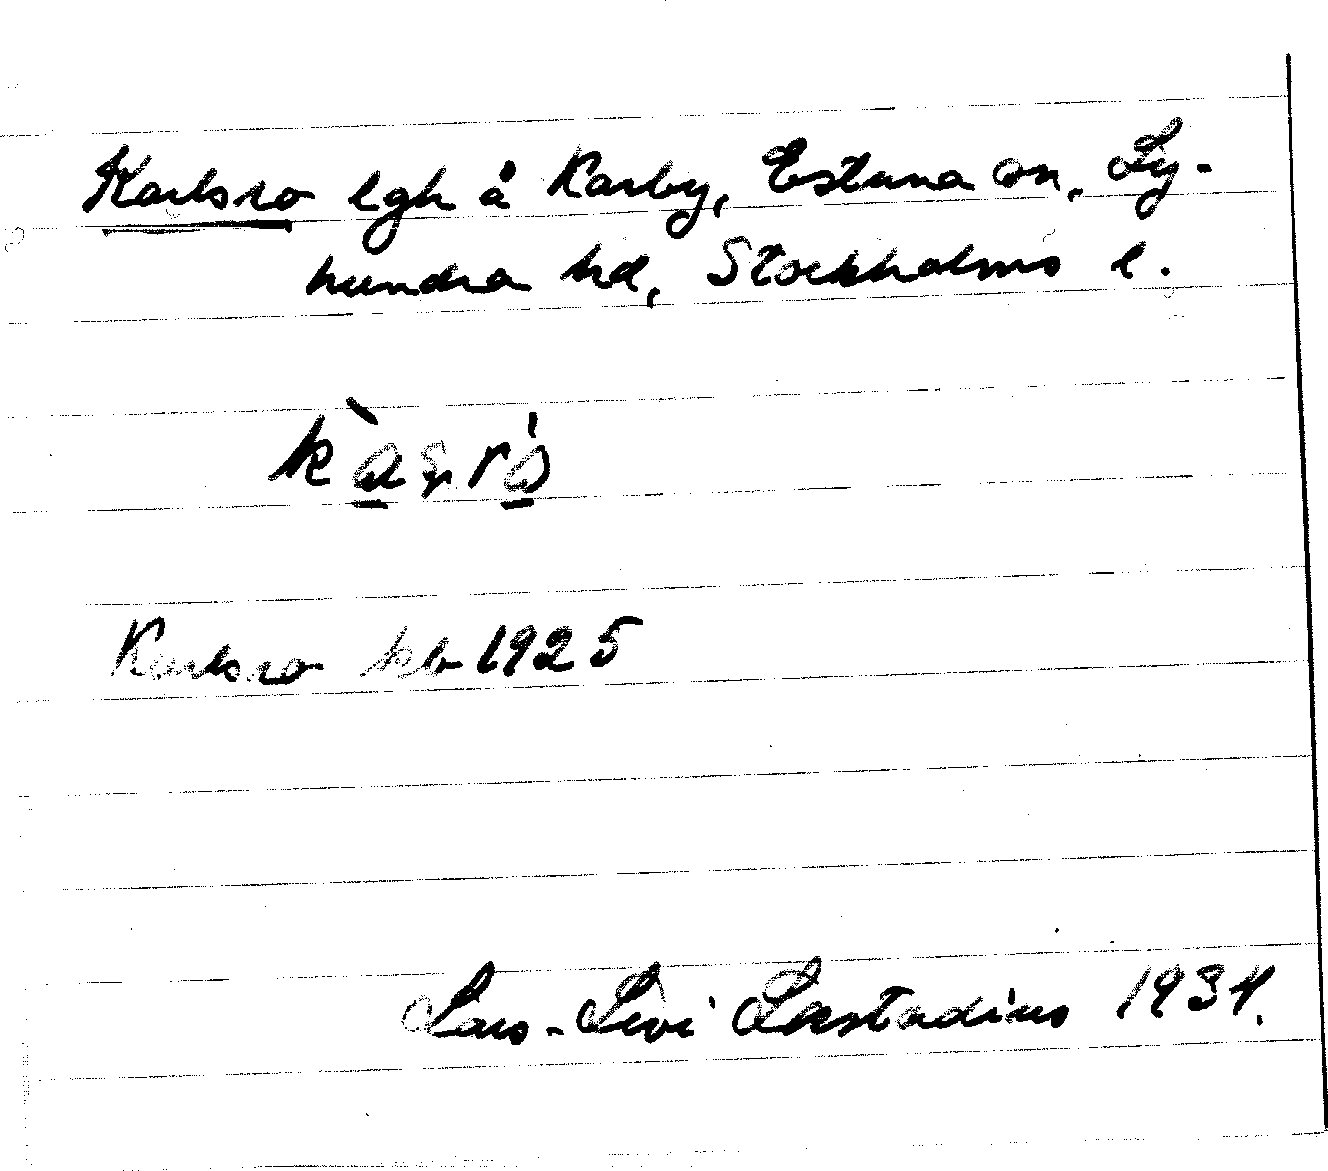 Karlsro lgh å Karby, Estuna sn, Ly-
hundra hd, Stockholms l.
Karlsro kb 1925
Lars-Levi Læstadius 1934.